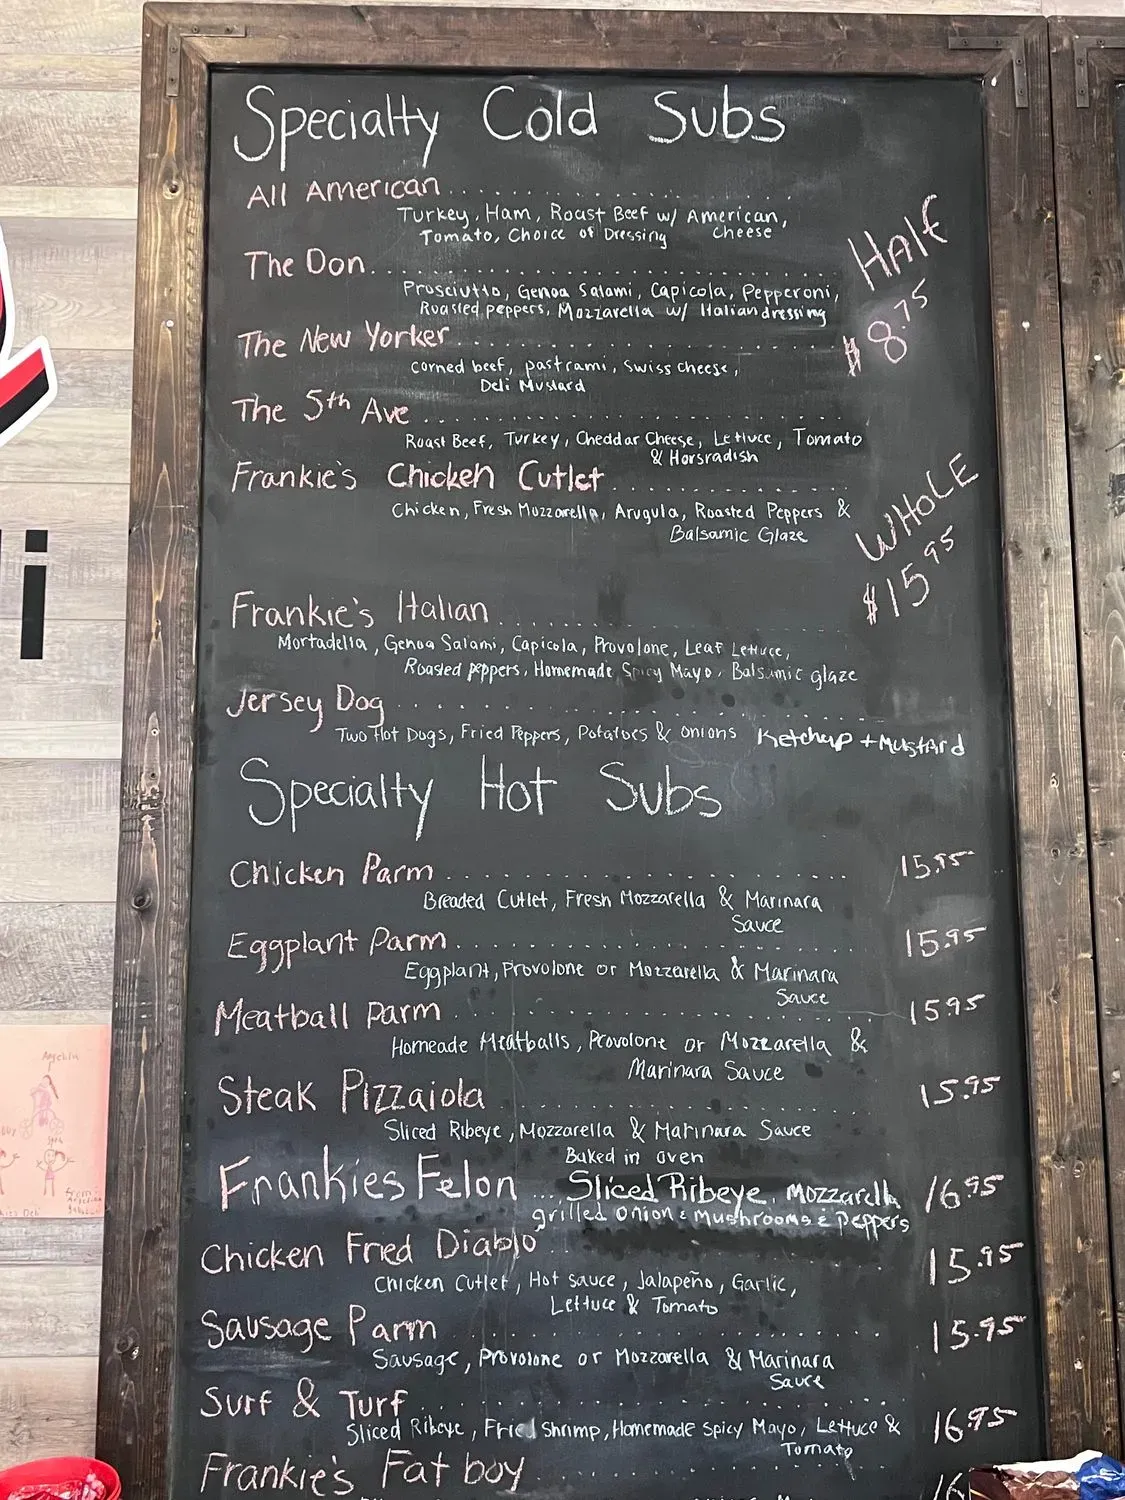 Specialty Cold Subs
All American
Turkey, Ham, Roast Beef w/ American,
Tomato, Choice of Dressing Cheese
The Don
Prosciutto, Genoa Salami, Capicola, Pepperoni,
Roasted peppers, Mozzarella w/ Italian dressing
HALF
$8.75
The New Yorker
corned beef, pastrami, Swiss cheese,
Deli Mustard
The 5th Ave
Roast Beef, Turkey, Cheddar Cheese, Lettuce, Tomato
& Horsradish
Frankie's Chicken Cutlet
Chicken, Fresh Mozzarella, Arugula, Roasted Peppers &
Balsamic Glaze
WHOLE
$15.95
Frankie's Italian
Mortadella, Genoa Salami, Capicola, Provolone, Leaf Lettuce,
Roasted peppers, Homemade Spicy Mayo, Balsamic glaze
Jersey Dog
Two Hot Dogs, Fried Peppers, Potatoes & onions Ketchup + Mustard
Specialty Hot Subs
Chicken Parm 15.95
Breaded Cutlet, Fresh Mozzarella & Marinara
Sauce
Eggplant Parm 15.95
Eggplant, Provolone or Mozzarella & Marinara
Sauce
Meatball Parm 15.95
Homeade Meatballs, Provolone or Mozzarella &
Marinara Sauce
Steak Pizzaiola 15.95
Sliced Ribeye, Mozzarella & Marinara Sauce
Baked in oven
Frankies Felon ... Sliced Ribeye, Mozzarella 16.95
grilled onion & Mushrooms & Peppers
Chicken Fried Diablo 15.95
Chicken Cutlet, Hot sauce, Jalapeño, Garlic,
Lettuce & Tomato
Sausage Parm 15.95
Sausage, Provolone or Mozzarella & Marinara
Sauce
Surf & Turf 16.95
Sliced Ribeye, Fried Shrimp, Homemade Spicy Mayo, Lettuce &
Tomato
Frankie's Fat boy 16
i
Angelina